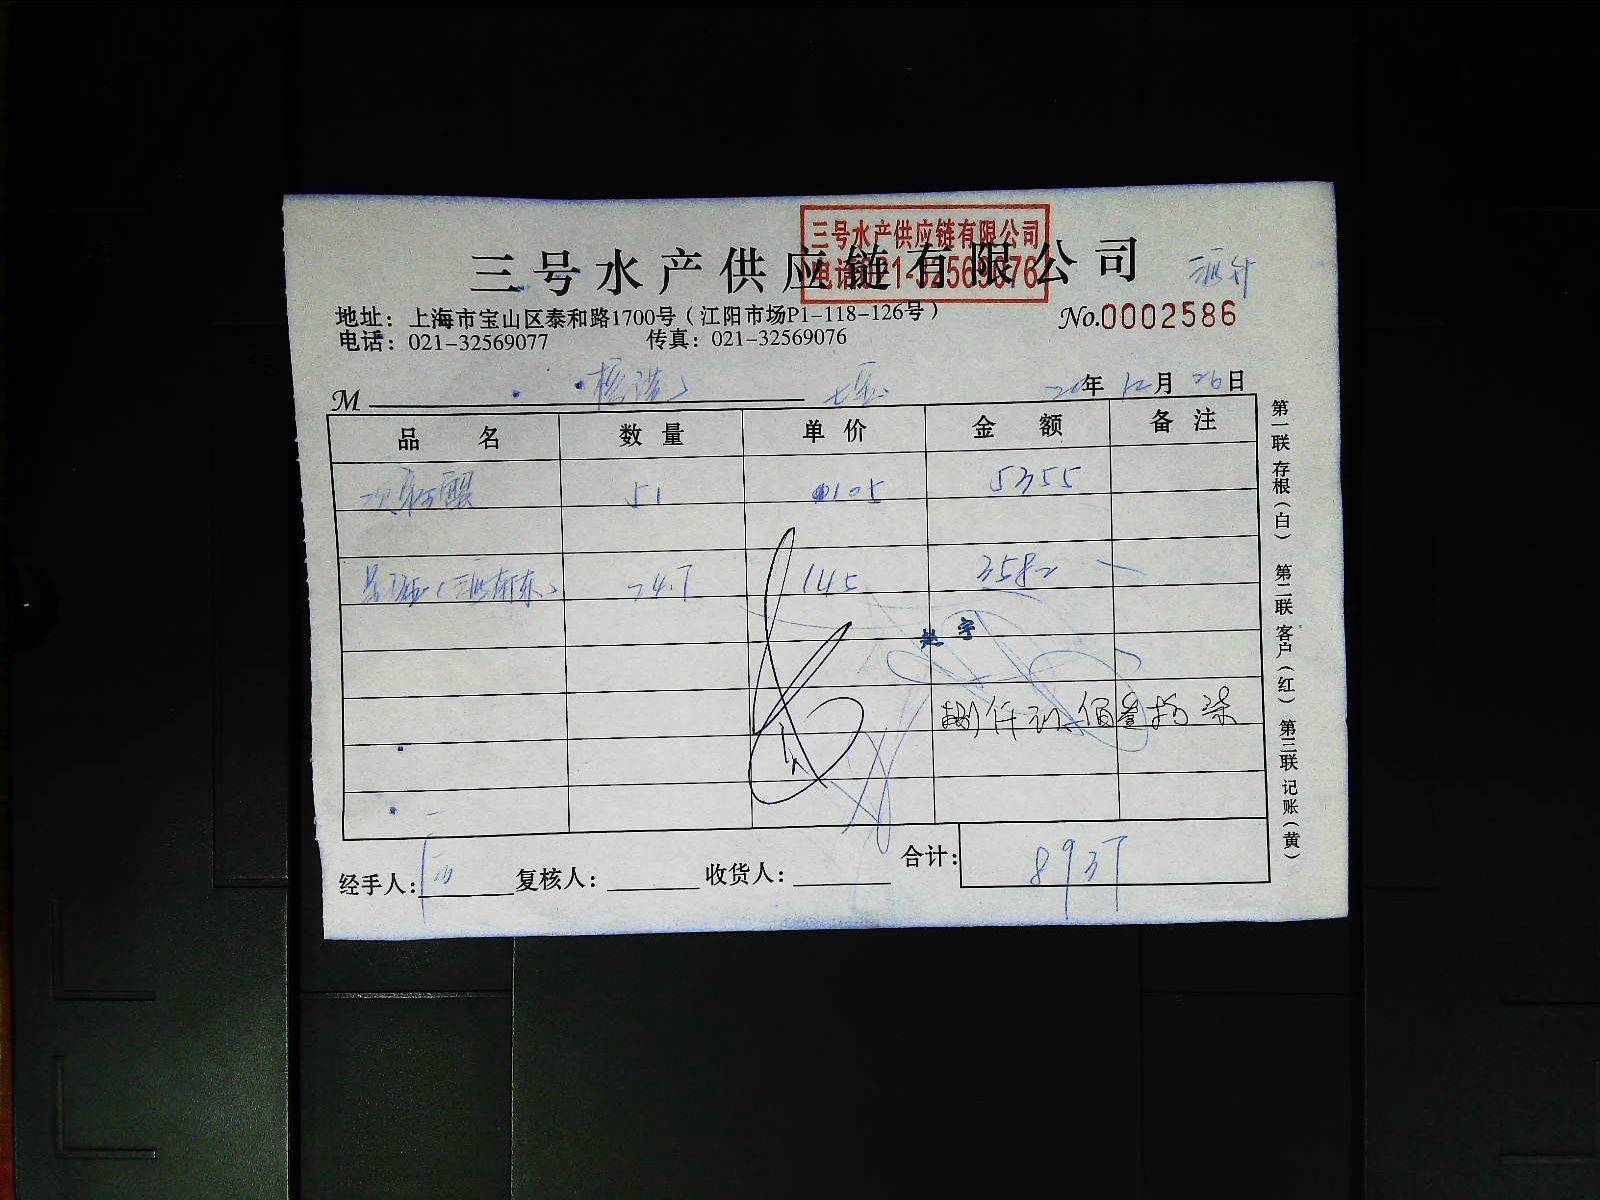 三号水产供应链有限公司
三号水产供应链有限公司
电话021-32569076
地址：上海市宝山区泰和路1700号（江阳市场P1-118-126号）
No.0002586
电话：021-32569077 传真：021-32569076
M 20年 12月 26日
品名 数量 单价 金额 备注
51 105 5355
24.7 145 3582
捌仟 佰叁拾柒
经手人： 复核人： 收货人： 合计： 8937
第一联 存根（白） 第二联 客户（红） 第三联 记账（黄）